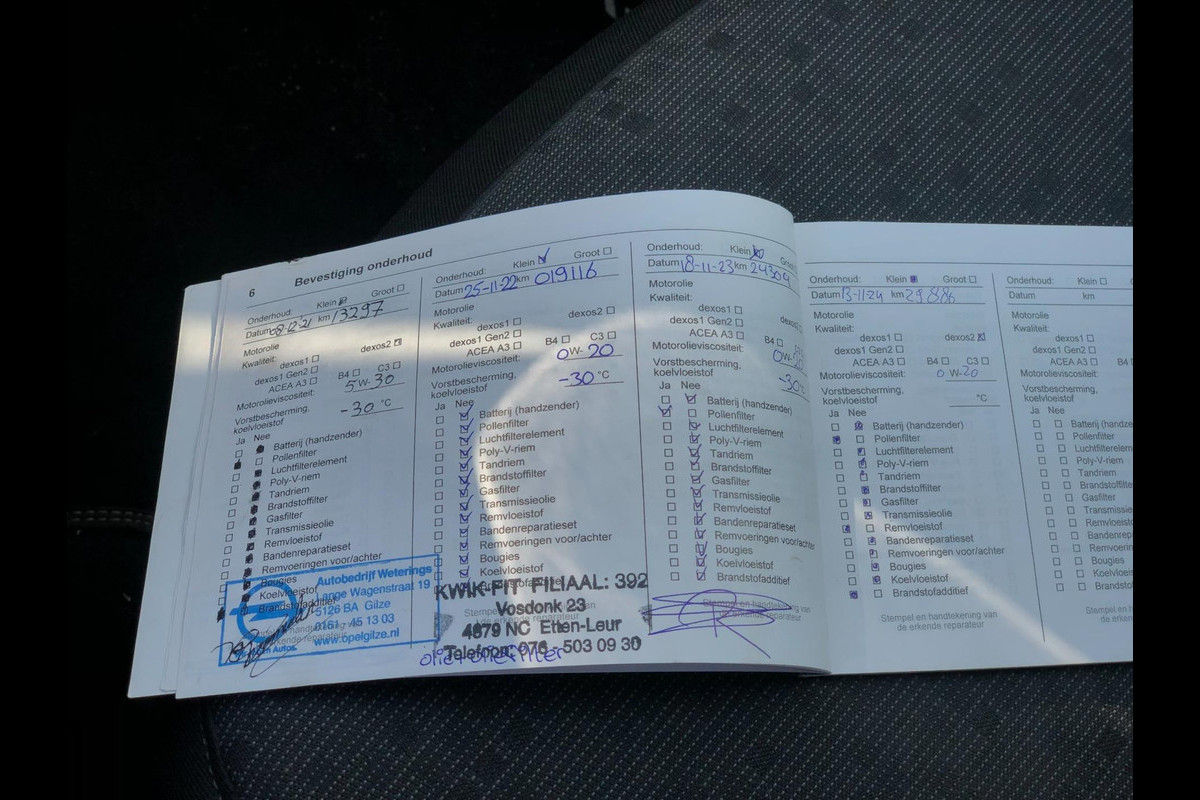 6
Bevestiging onderhoud
Onderhoud: Klein Groot
Datum 08-12-21 km 13297
Motorolie
Kwaliteit: dexos1 dexos2
dexos1 Gen2
ACEA A3 B4 C3
Motorolieviscositeit: 5W-30
Vorstbescherming,
koelvloeistof -30 °C
Ja Nee
Batterij (handzender)
Pollenfilter
Luchtfilterelement
Poly-V-riem
Tandriem
Brandstoffilter
Gasfilter
Transmissieolie
Remvloeistof
Bandenreparatieset
Remvoeringen voor/achter
Bougies
Koelvloeistof
Brandstofadditief
Autobedrijf Weterings
Lange Wagenstraat 19
5126 BA Gilze
0161 - 45 13 03
www.opelgilze.nl
Onderhoud: Klein Groot
Datum 25-11-22 km 019116
Motorolie
Kwaliteit:
dexos1 dexos2
dexos1 Gen2
ACEA A3 B4 C3
Motorolieviscositeit: 0W-20
Vorstbescherming,
koelvloeistof -30 °C
Ja Nee
Batterij (handzender)
Pollenfilter
Luchtfilterelement
Poly-V-riem
Tandriem
Brandstoffilter
Gasfilter
Transmissieolie
Remvloeistof
Bandenreparatieset
Remvoeringen voor/achter
Bougies
Koelvloeistof
KWIK-FIT FILIAAL: 392
Vosdonk 23
4879 NC Etten-Leur
Telefoon: 076 - 503 09 30
Onderhoud: Klein
Datum 18-11-23 km 24304
Motorolie
Kwaliteit:
dexos1
dexos1 Gen2
ACEA A3 B4
Motorolieviscositeit: 0W-
Vorstbescherming,
koelvloeistof -30
Ja Nee
Batterij (handzender)
Pollenfilter
Luchtfilterelement
Poly-V-riem
Tandriem
Brandstoffilter
Gasfilter
Transmissieolie
Remvloeistof
Bandenreparatieset
Remvoeringen voor/achter
Bougies
Koelvloeistof
Brandstofadditief
Stempel en handtekening van
de erkende reparateur
Onderhoud: Klein Groot
Datum 13-11-24 km 29886
Motorolie
Kwaliteit:
dexos1 dexos2
dexos1 Gen2
ACEA A3 B4 C3
Motorolieviscositeit: 0 W-20
Vorstbescherming,
koelvloeistof °C
Ja Nee
Batterij (handzender)
Pollenfilter
Luchtfilterelement
Poly-V-riem
Tandriem
Brandstoffilter
Gasfilter
Transmissieolie
Remvloeistof
Bandenreparatieset
Remvoeringen voor/achter
Bougies
Koelvloeistof
Brandstofadditief
Stempel en handtekening van
de erkende reparateur
Onderhoud: Klein
Datum km
Motorolie
Kwaliteit:
dexos1
dexos1 Gen2
ACEA A3 B4
Motorolieviscositeit:
Vorstbescherming,
koelvloeistof
Ja Nee
Batterij (handzende
Pollenfilter
Luchtfilterelement
Poly-V-riem
Tandriem
Brandstoffilter
Gasfilter
Transmissieolie
Remvloeistof
Bandenrepa
Remvoering
Bougies
Koelvloeisto
Brandstofad
Stempel en h
de erken